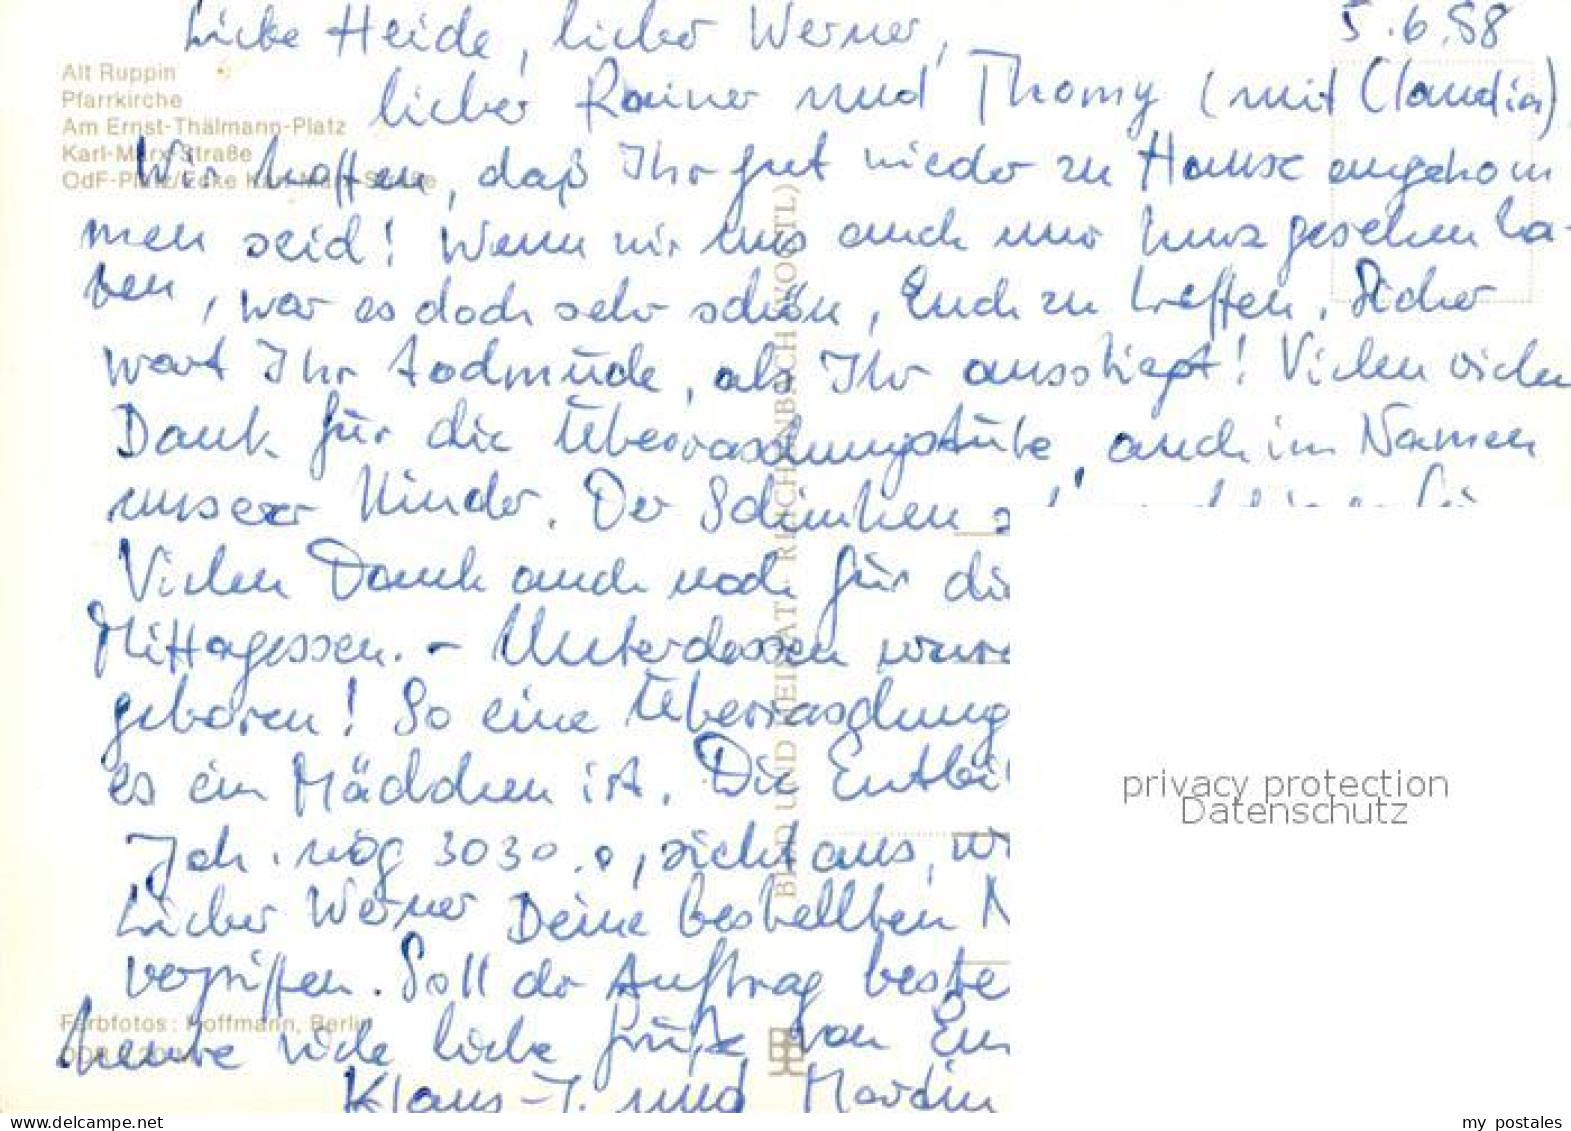 Liebe Heide, lieber Werner,
5.6.88
lieber Rainer und Thomy (mit Claudia)
Alt Ruppin
Pfarrkirche
Am Ernst-Thälmann-Platz
Karl-Marx-Straße
OdF-Platz/Ecke Karl-Marx-Straße
Wir hoffen, daß Ihr gut wieder zu Hause angekom
men seid! Wenn wir uns auch nur kurz gesehen ha-
ben, war es doch sehr schön, Euch zu treffen. Sicher
wart Ihr todmüde, als Ihr ausstiegt! Vielen vielen
Dank für die Überraschungstüte, auch im Namen
unserer Kinder. Der Schinken
Vielen Dank auch noch für die
Mittagessen. – Unterdessen wurde
geboren! So eine Überraschung
es ein Mädchen ist. Die Entbi
Joh. wog 3030, sieht aus, wi
Lieber Werner Deine bestellten N
vergriffen. Soll der Auftrag beste
heute viele liebe Grüße von Eu
Klaus-J. und Mardin
BILD UND HEIMAT REICHENBACH (VOGTL)
Farbfotos: Hoffmann, Berlin
privacy protection
Datenschutz
www.delcampe.net
my_postales